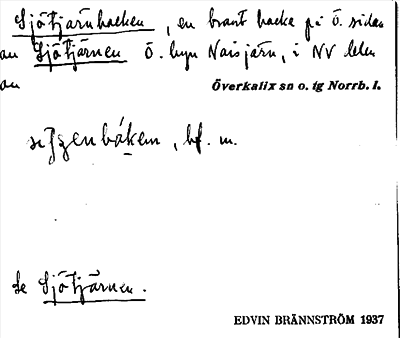 Sjötjärnbacken, en brant backe på ö. sidan
av Sjötjärnen ö. byn Naisjärn, i NV delen
av Överkalix sn o. tg Norrb. l.
bf. m.
Se Sjötjärnen.
EDVIN BRÄNNSTRÖM 1937